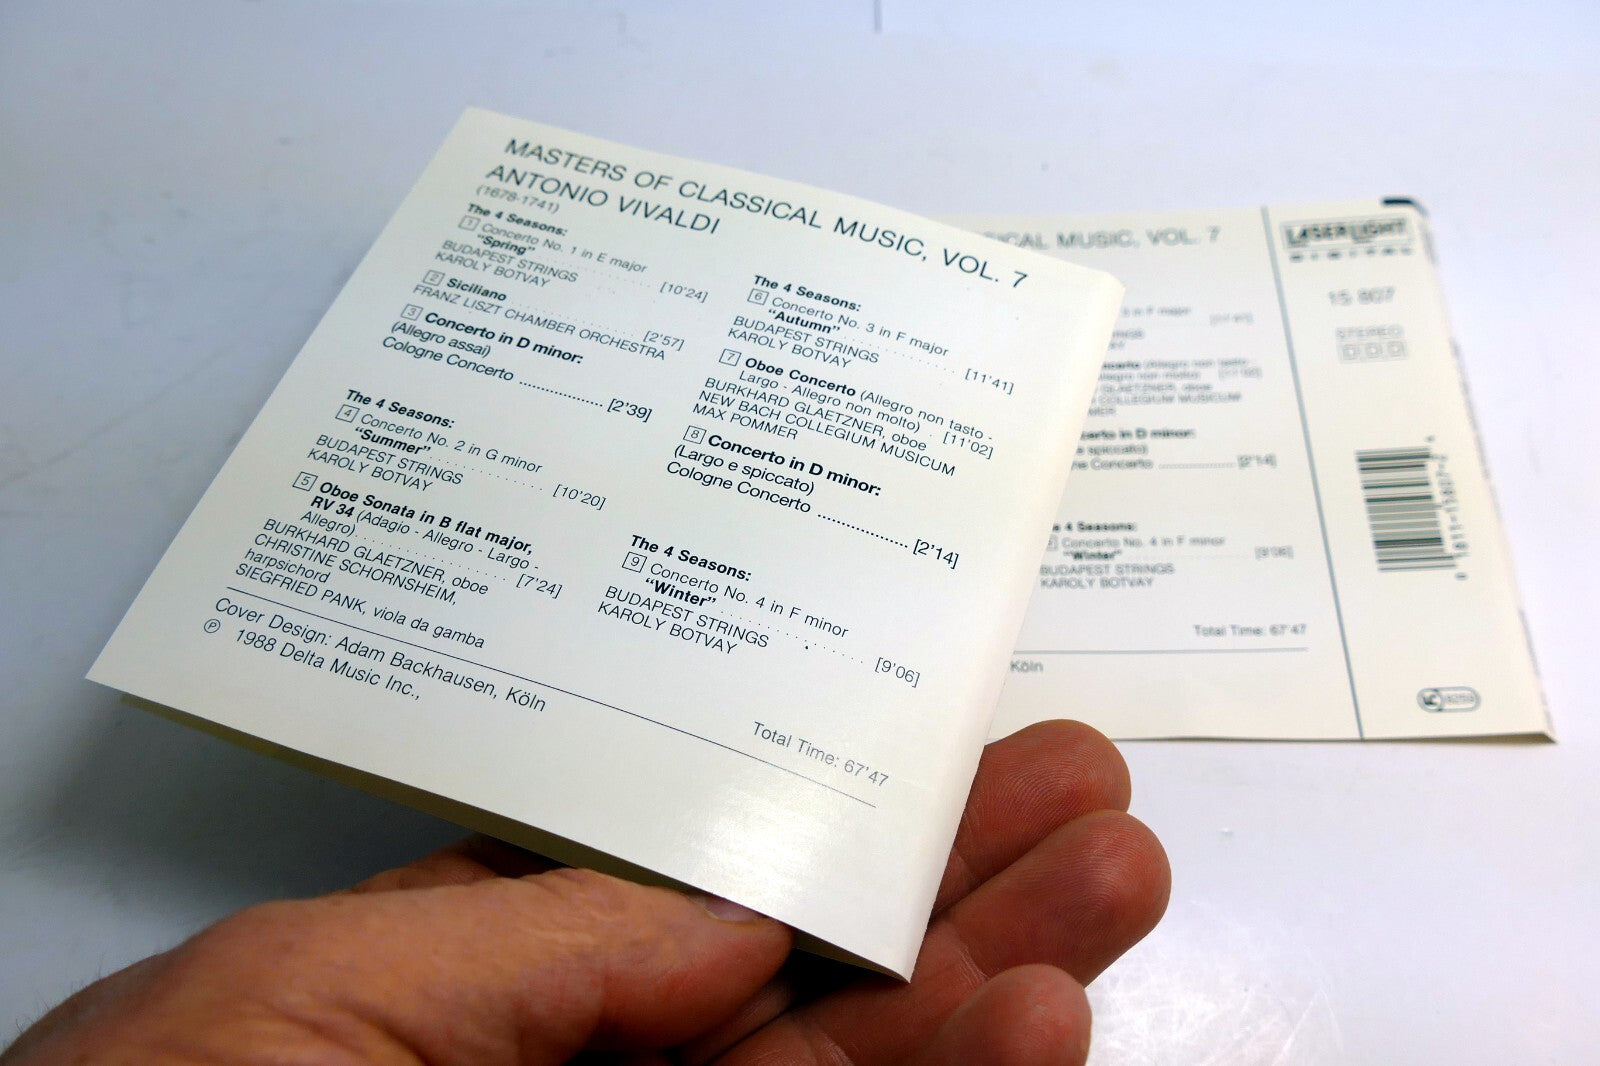 MASTERS OF CLASSICAL MUSIC, VOL. 7
ANTONIO VIVALDI
(1678-1741)
The 4 Seasons:
1 Concerto No. 1 in E major
"Spring" [10'24]
BUDAPEST STRINGS
KAROLY BOTVAY
2 Siciliano [2'57]
FRANZ LISZT CHAMBER ORCHESTRA
3 Concerto in D minor:
(Allegro assai)
Cologne Concerto [2'39]
The 4 Seasons:
4 Concerto No. 2 in G minor
"Summer" [10'20]
BUDAPEST STRINGS
KAROLY BOTVAY
5 Oboe Sonata in B flat major,
RV 34 (Adagio - Allegro - Largo -
Allegro) [7'24]
BURKHARD GLAETZNER, oboe
CHRISTINE SCHORNSHEIM,
harpsichord
SIEGFRIED PANK, viola da gamba
The 4 Seasons:
6 Concerto No. 3 in F major
"Autumn" [11'41]
BUDAPEST STRINGS
KAROLY BOTVAY
7 Oboe Concerto (Allegro non tasto -
Largo - Allegro non molto) [11'02]
BURKHARD GLAETZNER, oboe
NEW BACH COLLEGIUM MUSICUM
MAX POMMER
8 Concerto in D minor:
(Largo e spiccato)
Cologne Concerto [2'14]
The 4 Seasons:
9 Concerto No. 4 in F minor
"Winter" [9'06]
BUDAPEST STRINGS
KAROLY BOTVAY
Total Time: 67'47
Cover Design: Adam Backhausen, Köln
℗ 1988 Delta Music Inc.,
MUSIC, VOL. 7
F major
(Allegro non tasto -
oboe
COLLEGIUM MUSICUM
in D minor:
Concerto [2'14]
4 Seasons:
Concerto No. 4 in F minor
"Winter" [9'06]
BUDAPEST STRINGS
KAROLY BOTVAY
Total Time: 67'47
Köln
LASERLIGHT
DIGITAL
15 807
STEREO
DDD